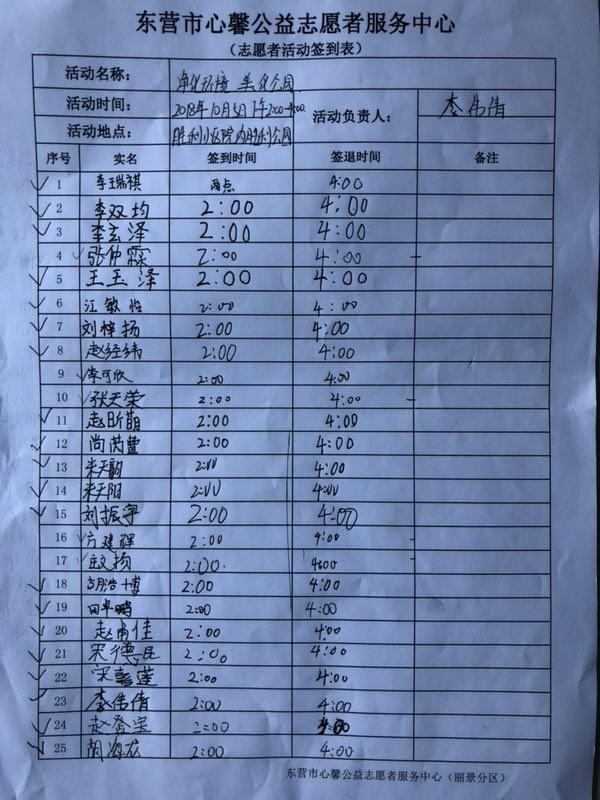 东营市心馨公益志愿者服务中心
（志愿者活动签到表）
活动名称： 净化环境 美化公园
活动时间： 2018年10月 下午2:00-4:00 活动负责人： 李伟倩
活动地点： 胜利 胜利公园
序号 实名 签到时间 签退时间 备注
1 李瑞祺 两点 4:00
2 李双均 2:00 4:00
3 李玄泽 2:00 4:00
4 张仲霖 2:00 4:00
5 王玉泽 2:00 4:00
6 江敏怡 2:00 4:00
7 刘梓扬 2:00 4:00
8 赵经纬 2:00 4:00
9 李可欣 2:00 4:00
10 张天荣 2:00 4:00
11 赵昕萌 2:00 4:00
12 尚芮萱 2:00 4:00
13 宋天韵 2:00 4:00
14 宋天阳 2:00 4:00
15 刘振宇 2:00 4:00
16 方建辉 2:00 4:00
17 扬 2:00 4:00
18 博 2:00 4:00
19 田卓鹏 2:00 4:00
20 赵甫佳 2:00 4:00
21 宋德民 2:00 4:00
22 宋 莲 2:00 4:00
23 李伟倩 2:00 4:00
24 赵 宝 2:00 4:00
25 胡海龙 2:00 4:00
东营市心馨公益志愿者服务中心（丽景分区）